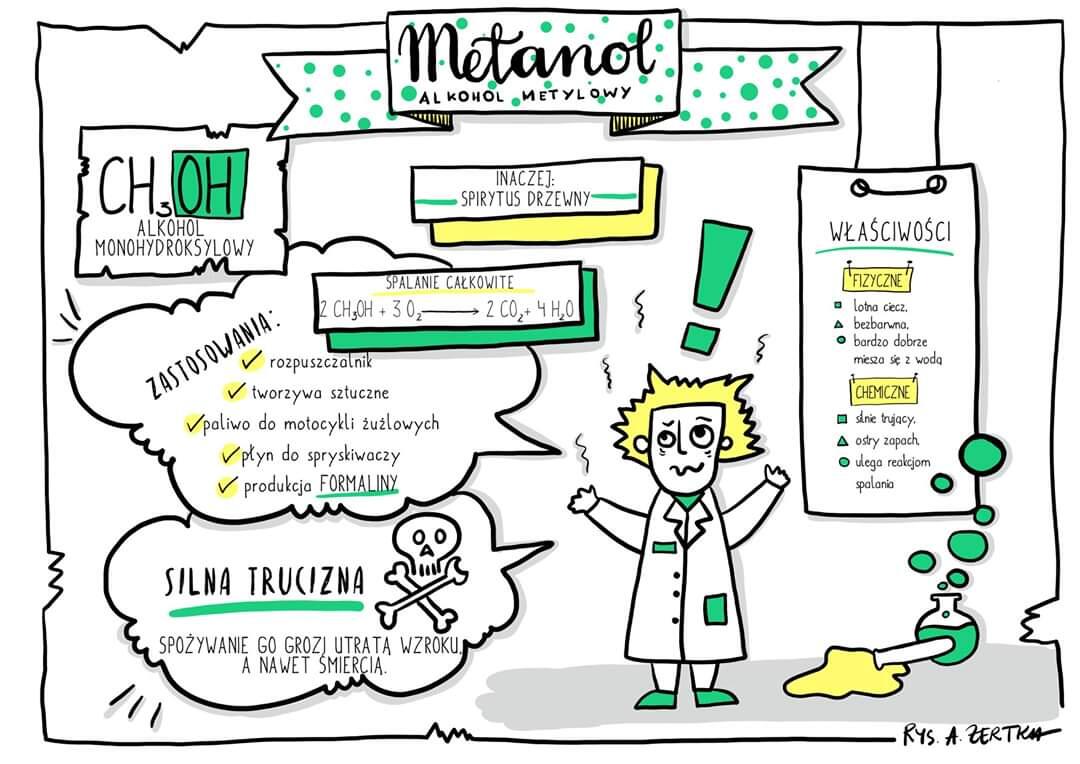 Metanol
ALKOHOL METYLOWY
CH₃OH
ALKOHOL
MONOHYDROKSYLOWY
INACZEJ:
SPIRYTUS DRZEWNY
SPALANIE CAŁKOWITE
2 CH₃OH + 3 O₂ → 2 CO₂ + 4 H₂O
ZASTOSOWANIA:
rozpuszczalnik
tworzywa sztuczne
paliwo do motocykli żużlowych
płyn do spryskiwaczy
produkcja FORMALINY
SILNA TRUCIZNA
SPOŻYWANIE GO GROZI UTRATĄ WZROKU,
A NAWET ŚMIERCIĄ.
WŁAŚCIWOŚCI
FIZYCZNE
lotna ciecz,
bezbarwna,
bardzo dobrze
miesza się z wodą
CHEMICZNE
silnie trujący,
ostry zapach,
ulega reakcjom
spalania
RYS. A. ŻERTKA